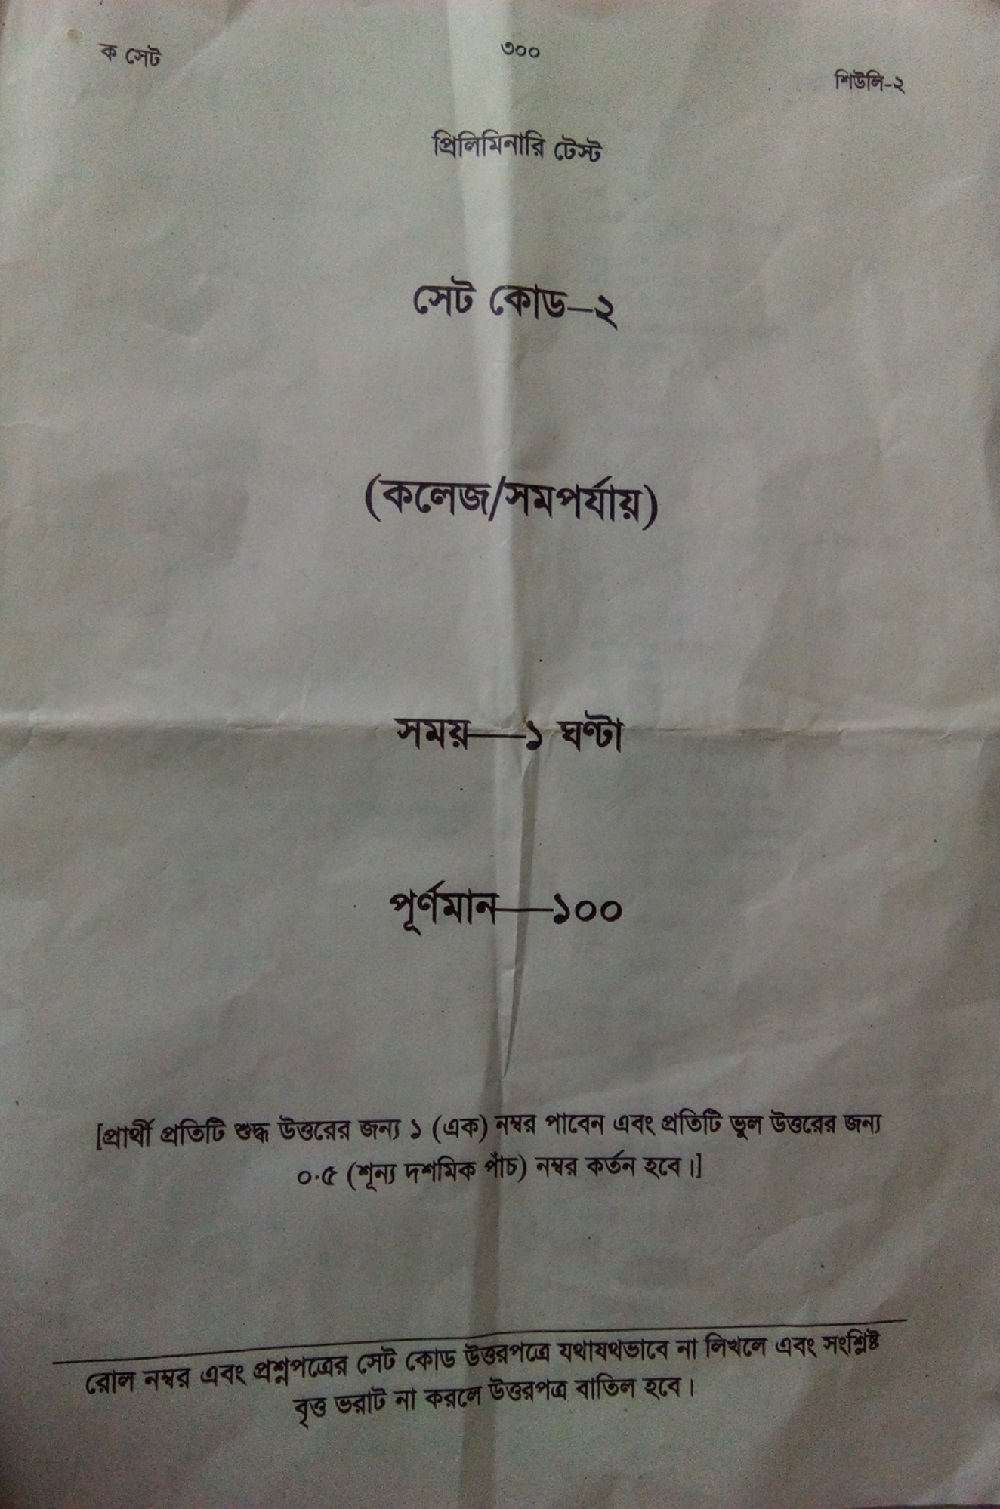 ক সেট
৩০০
শিউলি-২
প্রিলিমিনারি টেস্ট
সেট কোড—২
(কলেজ/সমপর্যায়)
সময়—১ ঘণ্টা
পূর্ণমান—১০০
[প্রার্থী প্রতিটি শুদ্ধ উত্তরের জন্য ১ (এক) নম্বর পাবেন এবং প্রতিটি ভুল উত্তরের জন্য
০·৫ (শূন্য দশমিক পাঁচ) নম্বর কর্তন হবে।]
রোল নম্বর এবং প্রশ্নপত্রের সেট কোড উত্তরপত্রে যথাযথভাবে না লিখলে এবং সংশ্লিষ্ট
বৃত্ত ভরাট না করলে উত্তরপত্র বাতিল হবে।